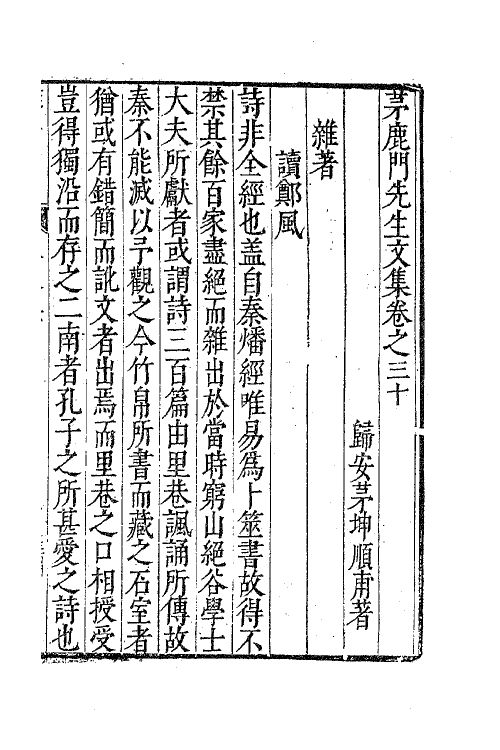 茅鹿門先生文集卷之三十
歸安茅坤順甫著
雜著
讀鄭風
詩非全經也盖自秦燔經唯易爲卜筮書故得不
禁其餘百家盡絕而雜出於當時窮山絕谷學士
大夫所獻者或謂詩三百篇由里巷諷誦所傳故
秦不能滅以予觀之今竹帛所書而藏之石室者
猶或有錯簡而訛文者出焉而里巷之口相授受
豈得獨沿而存之二南者孔子之所甚愛之詩也